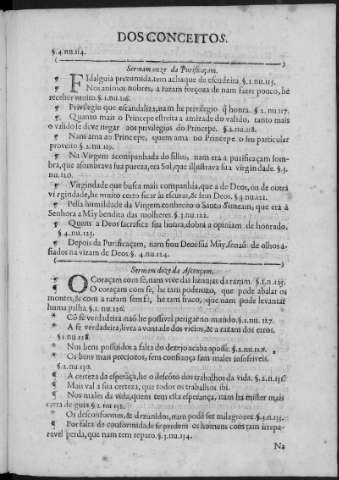 DOS CONCEITOS.
§. 4. nu. 114.
Sermam onze da Purificaçam.
¶ Fidalguia prezumida, tem achaque de escudeira §. 1. nu. 115.
¶ Nos animos nobres, a razam forçoza de nam fazer pouco, he
receber muito §. 1. nu. 116.
¶ Privilegio que escandaliza, nam he privilegio q̃ honra. §. 2. nu. 117.
¶ Quanto mais o Principe estreita a amizade do valido, tanto mais
o valido se deve negar aos privilegios do Principe. §. 2. nu. 118.
¶ Nam ama ao Principe, quem ama no Principe o seu particular
proveito §. 2. nu. 119.
¶ Na Virgem acompanhada do filho, nam era a purificaçam som-
bra, que asombrava sua pureza, era Sol, que illustrava sua virgindade §. 3.
nu. 120.
¶ Virgindade que busca mais companhia, que a de Deos, ou de outra
virgindade, he muito certo ficar às escuras, & sem Deos. §. 4. nu. 121.
¶ Pella humildade da Virgem, conheceo o Santo Simeam, que era a
Senhora a Mãy bendita das molheres §. 3. nu. 122.
¶ Quem a Deos sacrifica sua honra, dobra a opiniam de honrado.
§. 4. nu. 123.
¶ Depois da Purificaçam, nam sou Deos sua Mãy, senaõ de olhos a-
fiados na vizam de Deos. §. 4. nu. 124.
Sermam doze da Ascençam.
¶ O Coraçam com fè, nam vive das heranças da razam. §. 1. n. 125.
¶ O coraçam com fè, he tam poderozo, que pode abalar os
montes, & com a razam sem fè, he tam fraco, que nam pode levantar
huma palha §. 1. nu. 126.
¶ Cõ fè verdadeira naõ he possivel perigar no mundo. §. 1. nu. 127.
¶ A fè verdadeira, livra a vontade dos vicios, & a razam dos erros.
§. 1. nu. 128.
¶ Nos bens possuidos a falta do dezejo acaba o posse. §. 2. nu. 129.
¶ Os bens mais preciozos, sem confiança sam males insofriveis.
§. 2. nu. 130.
¶ A certeza da esperãça, he o desconto dos trabalhos da vida. §. 2. n. 131.
¶ Mais val a sua certeza, que todos os trabalhos della.
¶ Nos males da vida, quem tem esta esperança, nam ha mister mais
carta de guia. §. 2. nu. 132.
¶ Os desconformes, & dezunidos, nam podẽ ser milagrozos §. 3. n. 133.
¶ Por falta da conformidade se perdem os homens com tam irrepa-
ravel perda, que nam tem reparo. §. 3. nu. 134.
Na